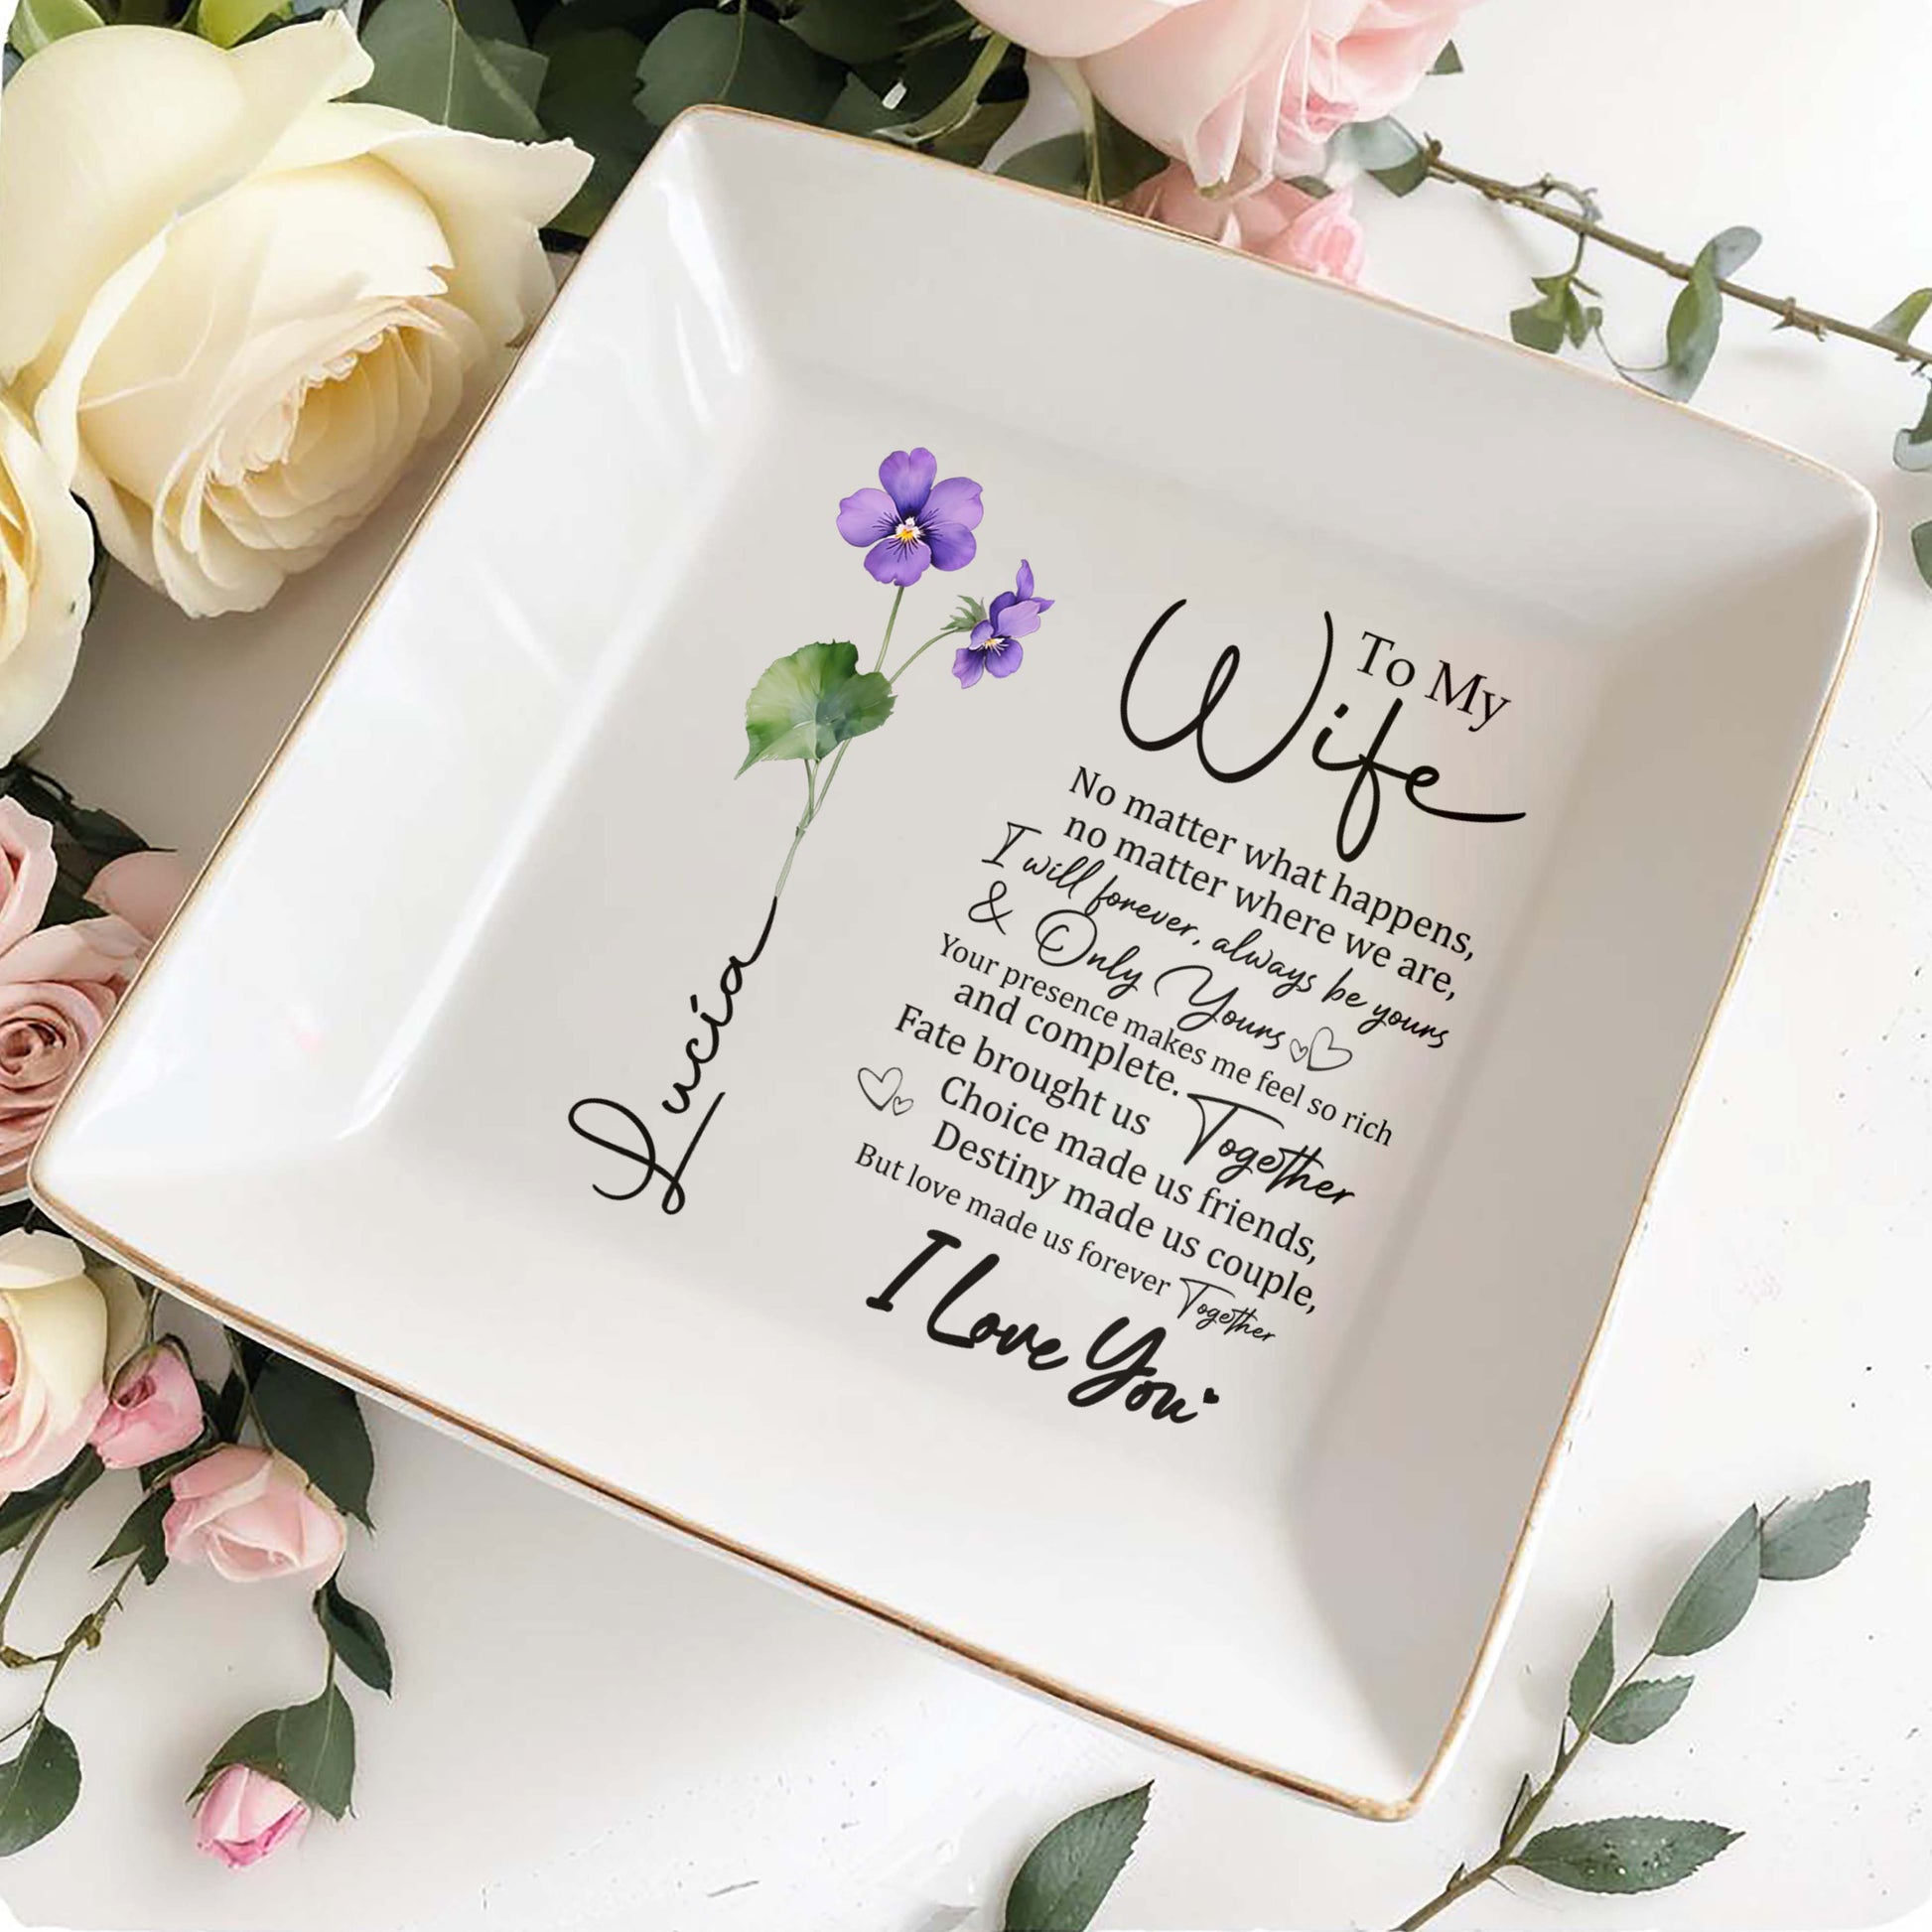 Lucia
To My
Wife
No matter what happens,
no matter where we are,
I will forever, always be yours
& Only Yours
Your presence makes me feel so rich
and complete.
Fate brought us Together
Choice made us friends,
Destiny made us couple,
But love made us forever Together
I Love You